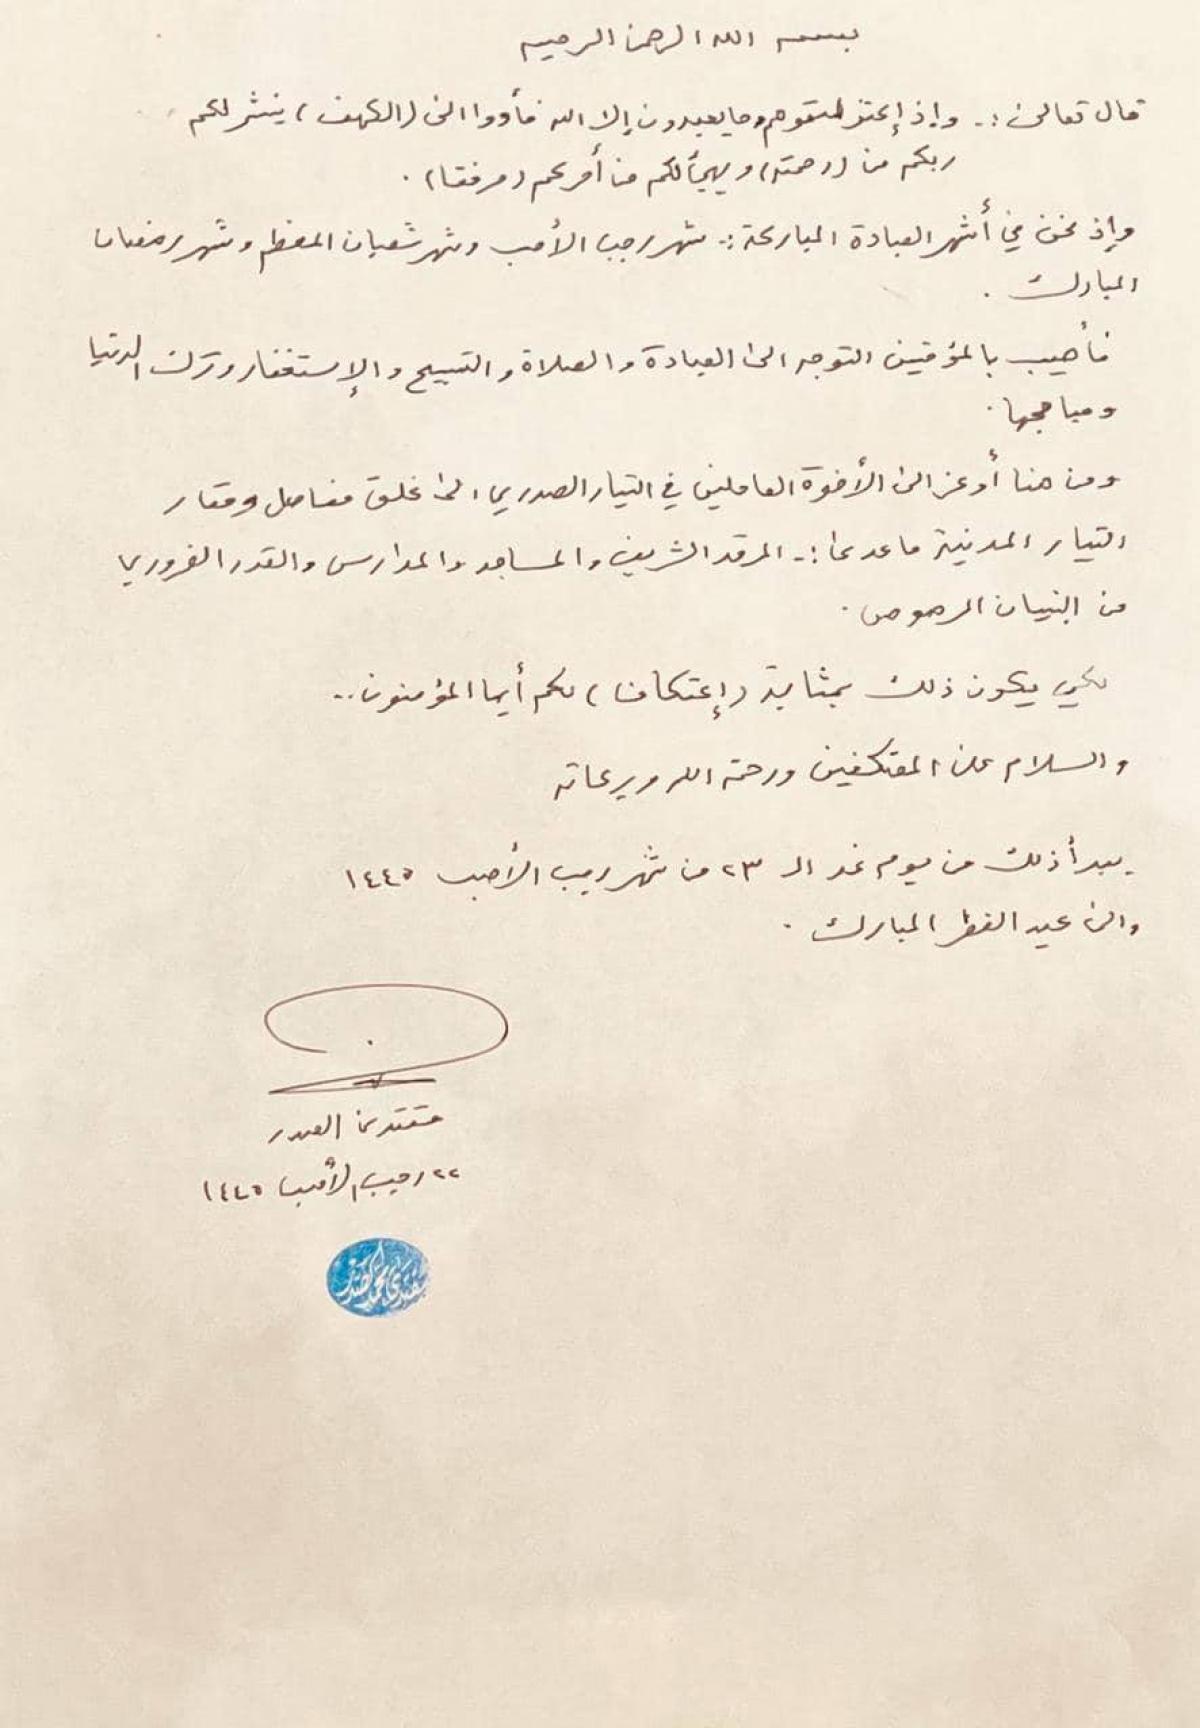 بسمه الله الرحمن الرحيم
قال تعالى :ـ وإذ إعتزلتموهم وما يعبدون إلا الله فأووا الى (الكهف) ينشر لكم
ربكم من (رحمته) ويهيأ لكم من أمركم (مرفقا) .
وإذ نحن في أشهر العبادة المباركة :ـ شهر رجب الأصب وشهر شعبان المعظم وشهر رمضان
المبارك .
فأهيب بالمؤمنين التوجه الى العبادة والصلاة والتسبيح والإستغفار وترك الدنيا
ومباهجها .
ومن هنا أوعز الى الأخوة العاملين في التيار الصدري الى غلق مفاصل ومقار
التيار المدنية ما عدى :ـ المرقد الشريف والمساجد والمدارس والقدر الضروري
من البنيان المرصوص .
لكي يكون ذلك بمثابة (إعتكاف) لكم أيها المؤمنون ..
والسلام على المعتكفين ورحمة الله وبركاته
يبدأ ذلك من يوم غد الـ ٢٣ من شهر رجب الأصب ١٤٤٥
والى عيد الفطر المبارك .
مقتدى الصدر
٢٢ رجب الأصب ١٤٤٥
مقتدى محمد الصدر